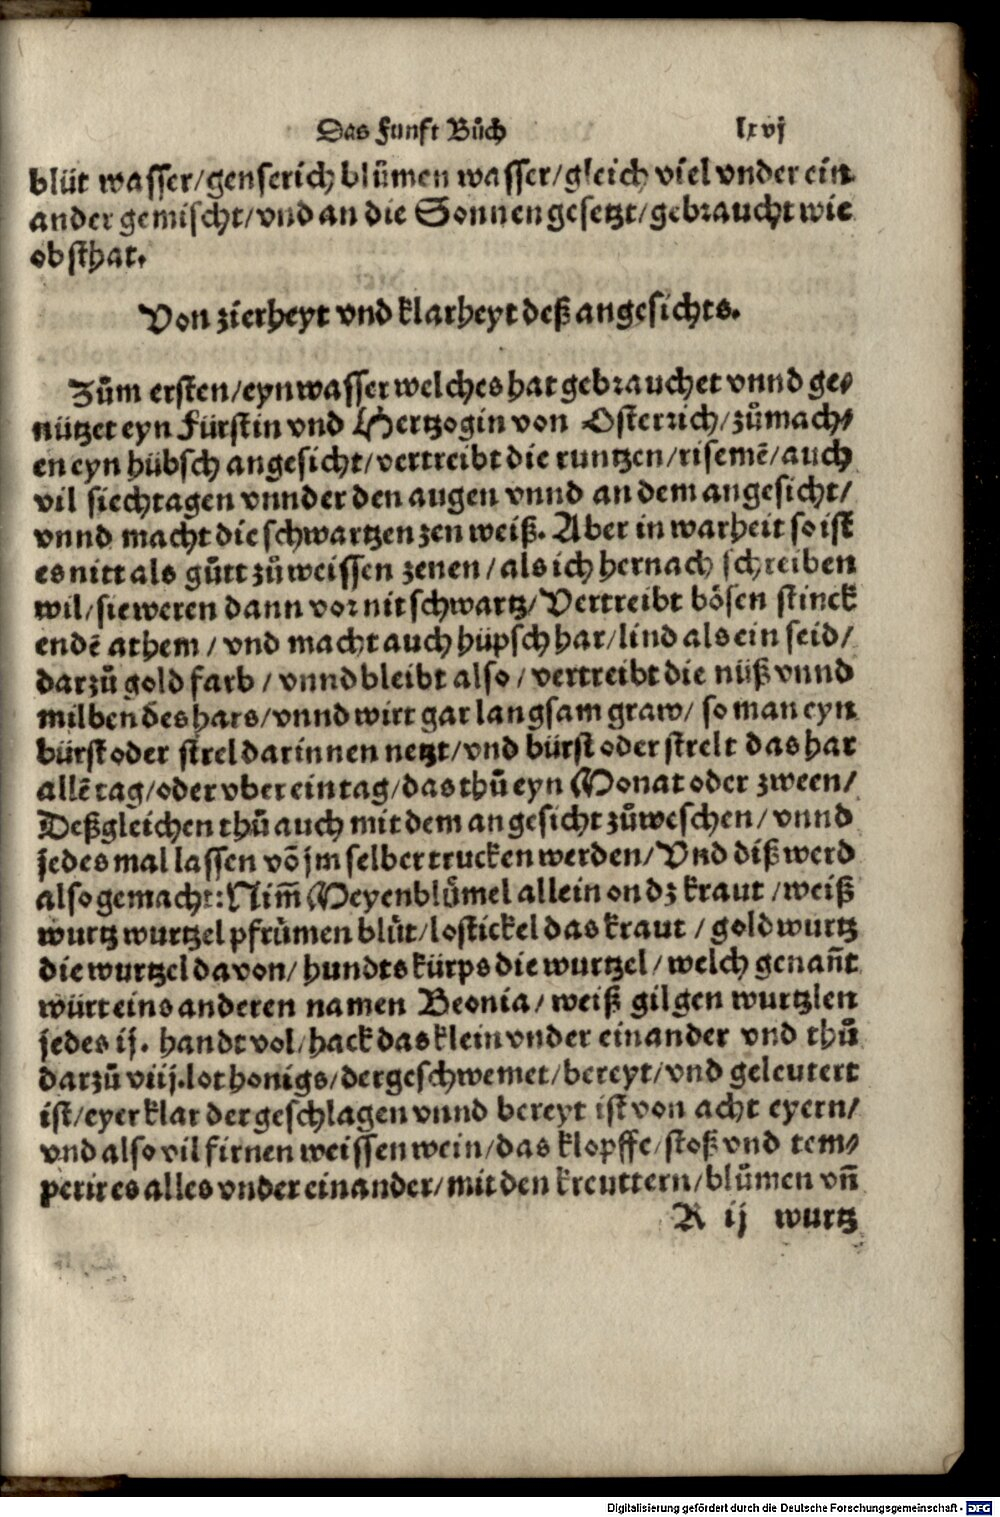 Das Funft Bůch lxvj
blüt wasser/genserich blůmen wasser/gleich viel vnder ein
ander gemischt/vnd an die Sonnen gesetzt/gebraucht wie
obsthat.
Von zierheyt vnd klarheyt deß angesichts.
Zům ersten/eyn wasser welches hat gebrauchet vnnd ge⸗
nützet eyn Fürstin vnd Hertzogin von Osterrich/zůmach⸗
en eyn hübsch angesicht/vertreibt die runtzen/risemē/auch
vil siechtagen vnnder den augen vnnd an dem angesicht/
vnnd macht die schwartzen zen weiß. Aber in warheit so ist
es nitt als gůtt zů weissen zenen/als ich hernach schreiben
wil/sie weren dann vor nit schwartz/Vertreibt bösen stinck
endē athem/vnd macht auch hüpsch har/lind als ein seid/
darzů gold farb/vnnd bleibt also/vertreibt die nüß vnnd
milben des hars/vnnd wirt gar langsam graw/so man eyn
bürst oder strel darinnen netzt/vnd bürst oder strelt das har
allē tag/oder vber ein tag/das thů eyn Monat oder zween/
Deßgleichen thů auch mit dem angesicht zůweschen/vnnd
jedes mal lassen võ jm selber trucken werden/Vnd diß werd
also gemacht: Nim̄ Meyenblůmel allein on dz kraut/weiß
wurtz wurtzel pfrümen blůt/lostickel das kraut/goldwurtz
die wurtzel davon/hundts kürps die wurtzel/welch genan̄t
würt eins anderen namen Beonia/weiß gilgen wurtzlen
jedes ij. handt vol/hack das klein vnder einander vnd thů
darzů viij. lot honigs/der geschwemet/bereyt/vnd geleutert
ist/eyer klar der geschlagen vnnd bereyt ist von acht eyern/
vnd also vil firnen weissen wein/das klopffe/stoß vnd tem⸗
perir es alles vnder einander/mit den kreuttern/blůmen vn̄
R ij wurtz
Digitalisierung gefördert durch die Deutsche Forschungsgemeinschaft - DFG